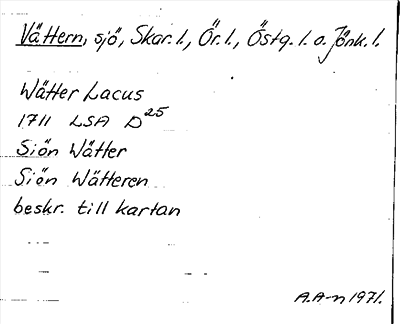 Vättern, sjö, Skar. l., Ör. l., Östg. l. o. Jönk. l.
Wätter Lacus
1711 LSA D25
Siön Wätter
Siön Wätteren
beskr. till kartan
A.A-n 1971.